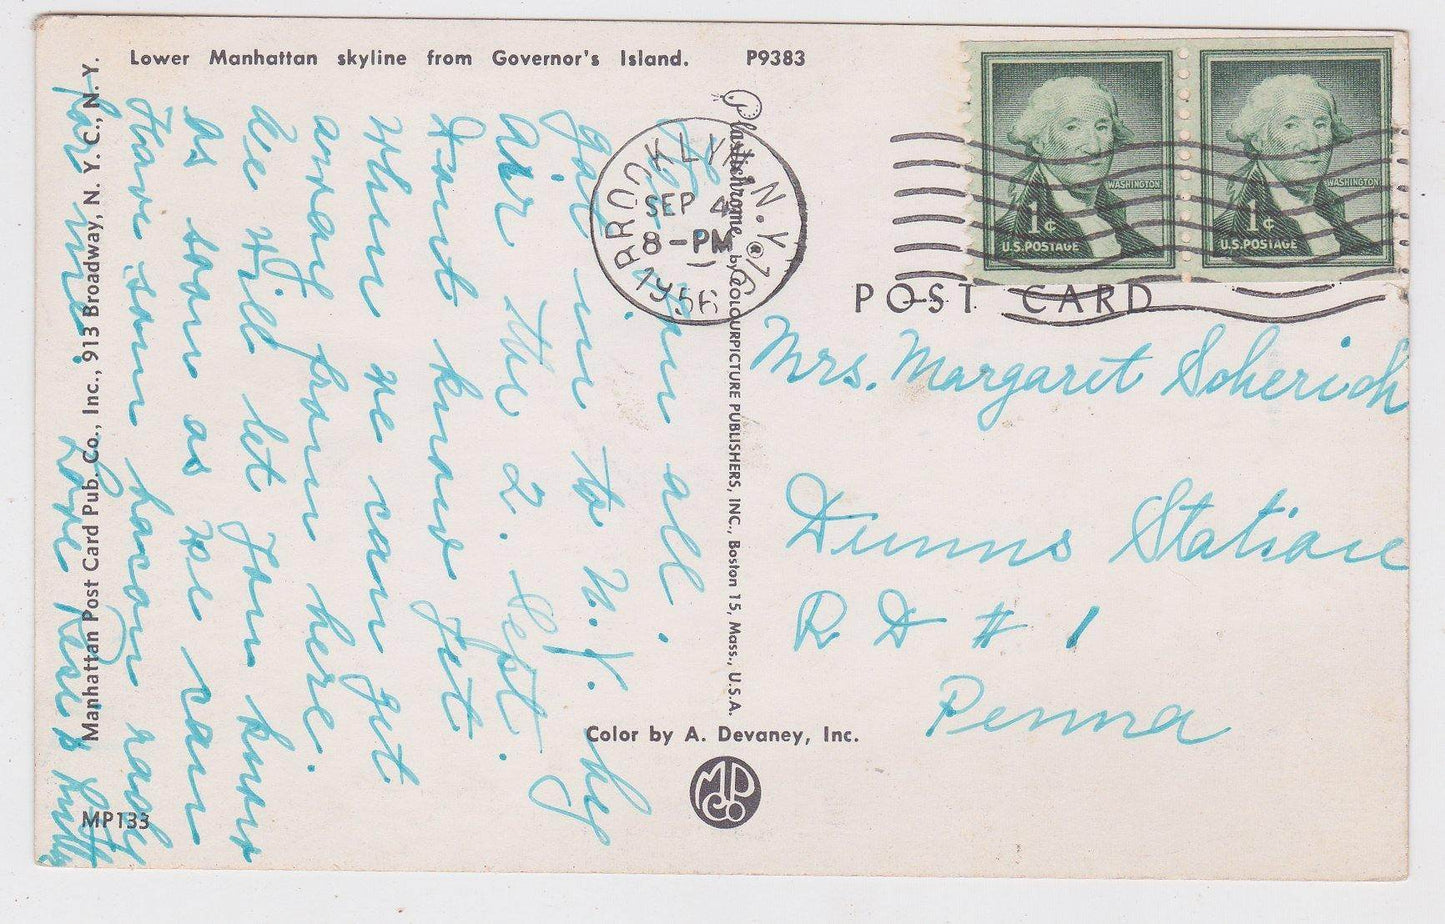 Lower Manhattan skyline from Governor's Island. P9383
Manhattan Post Card Pub. Co., Inc., 913 Broadway, N. Y. C., N. Y.
MP133
Plastichrome ® by COLOURPICTURE PUBLISHERS, INC., Boston 15, Mass., U.S.A.
Color by A. Devaney, Inc.
MPCo
POST CARD
BROOKLYN, N.Y.
SEP 4
8-PM
1956
1¢ WASHINGTON
U.S. POSTAGE
1¢ WASHINGTON
U.S. POSTAGE
Hi Hon all.
got in to N.Y. by
air the 2. Sept.
Dont know jet
when we can get
away from here.
We will let you know
as soon as we can
Have som bacon rady
for me. Love Rose &
Mrs. Margaret Scherich
Dunns Station
R D # 1
Penna